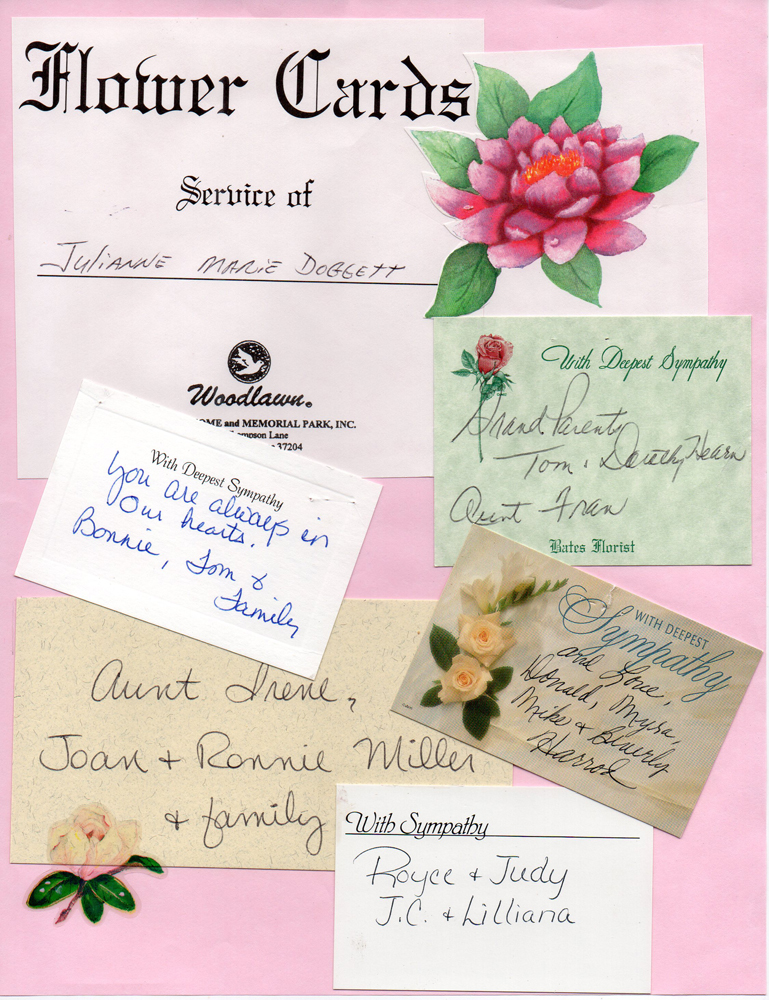 Flower Cards
Service of
Julianne Marie Doggett
Woodlawn®
OME and MEMORIAL PARK, INC.
ompson Lane
37204
With Deepest Sympathy
Grand Parents
Tom & Dorothy Hearn
Aunt Fran
Bates Florist
With Deepest Sympathy
You are always in
Our hearts.
Bonnie, Tom &
Family
WITH DEEPEST
Sympathy
and Love,
Donald, Myra,
Mike & Beverly
Harrod
Aunt Irene,
Joan + Ronnie Miller
+ family
With Sympathy
Royce + Judy
J.C. + Lilliana